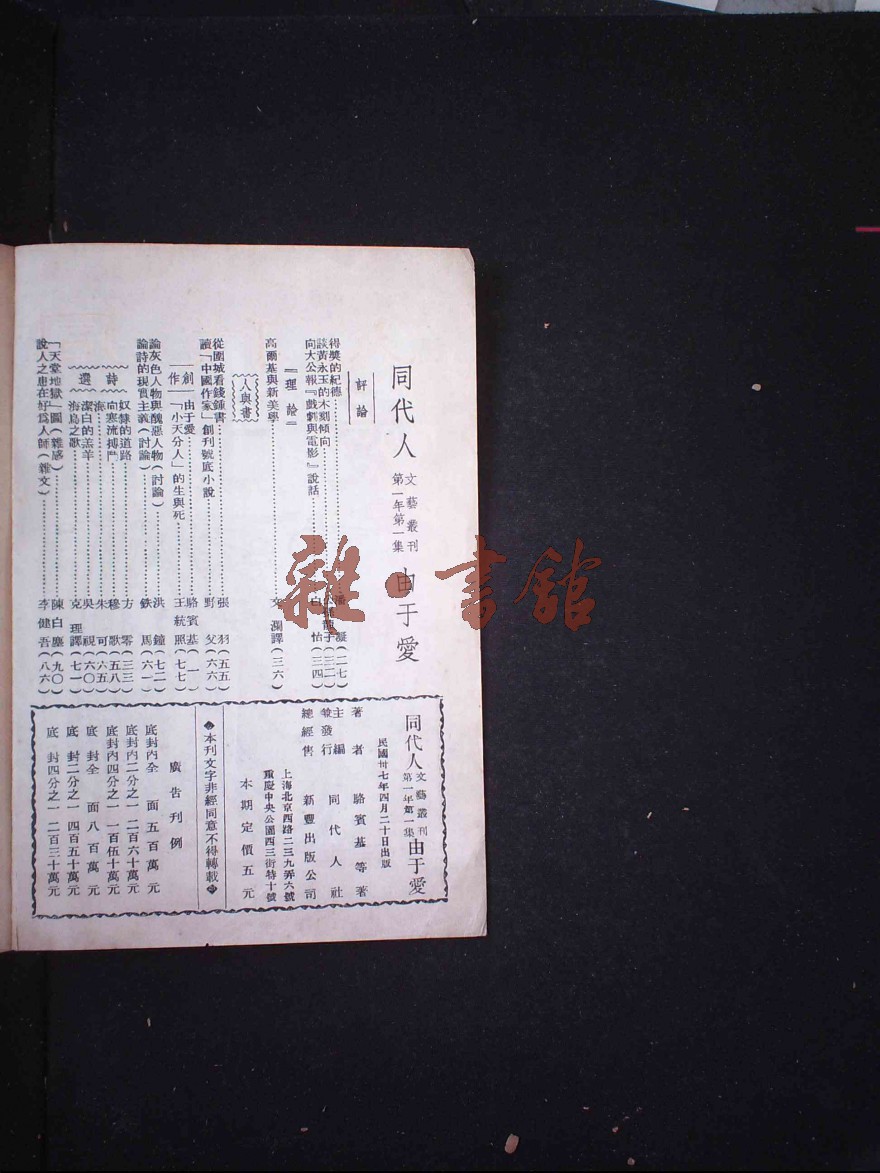 同代人 文藝叢刊 第一年第一集 由于愛
評論
得獎的紀德 潘凝(二七)
談黃永玉的木刻傾向 子(三二)
向大公報『戲劇與電影』說話 白怡(三四)
『理論』
高爾基與新美學 文瀾譯(三六)
人與書
從圍城看錢鍾書 張羽(五五)
讀「中國作家」創刊號底小說 野父(六六)
創作
由于愛 駱賓基(一)
「小天分人」的生與死 王統照(七七)
論灰色人物與醜惡人物(討論) 洪鐘(七二)
論詩的現實主義(討論) 鉄馬(六一)
詩選
奴隸的道路 方零(三三)
向寒流搏鬥 穆歌(五八)
海 朱可(六五)
潔白的羔羊 吳視(六〇)
海鳥之歌 克理譯(七一)
「天堂地獄」圖(雜感) 陳白塵(九〇)
說人之患在好爲人師(雜文) 李健吾(八六)
同代人 文藝叢刊 第一年第一集 由于愛
民國卅七年四月二十日出版
著者 駱賓基等著
主編兼發行 同代人社
總經售 新豐出版公司
上海北京西路二三九弄六號
重慶中央公園西三街特十號
本期定價五元
本刊文字非經同意不得轉載
廣告刊例
底封內全面五百萬元
底封內二分之一二百六十萬元
底封內四分之一一百伍十萬元
底封全面八百萬元
底封二分之一四百五十萬元
底封四分之一二百三十萬元
雜·書館